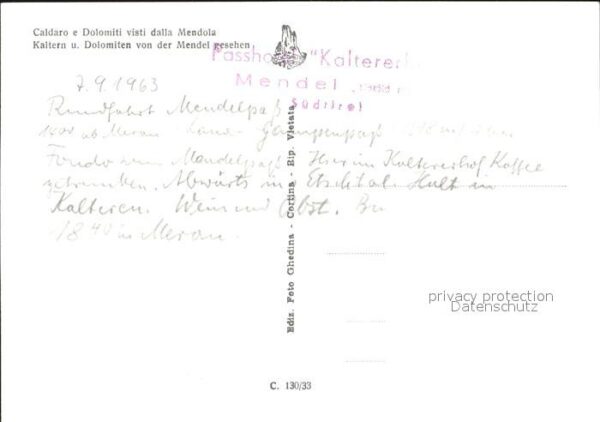 Caldaro e Dolomiti visti dalla Mendola
Kaltern u. Dolomiten von der Mendel gesehen
"Kaltererh
Mendel
Südtirol
7.9.1963
Rundfahrt Mendelpaß
14 00 ab Meran Gampenpaß
Fondo zum Mendelpaß. Hier im Kaltererhof Kaffee
getrunken. Abwärts ins Etschtal. Halt in
Kalteren. Wein und Obst. Bu
18 40 in Meran.
Ediz. Foto Ghedina - Cortina - Rip. Vietata
privacy protection
Datenschutz
C. 130/33